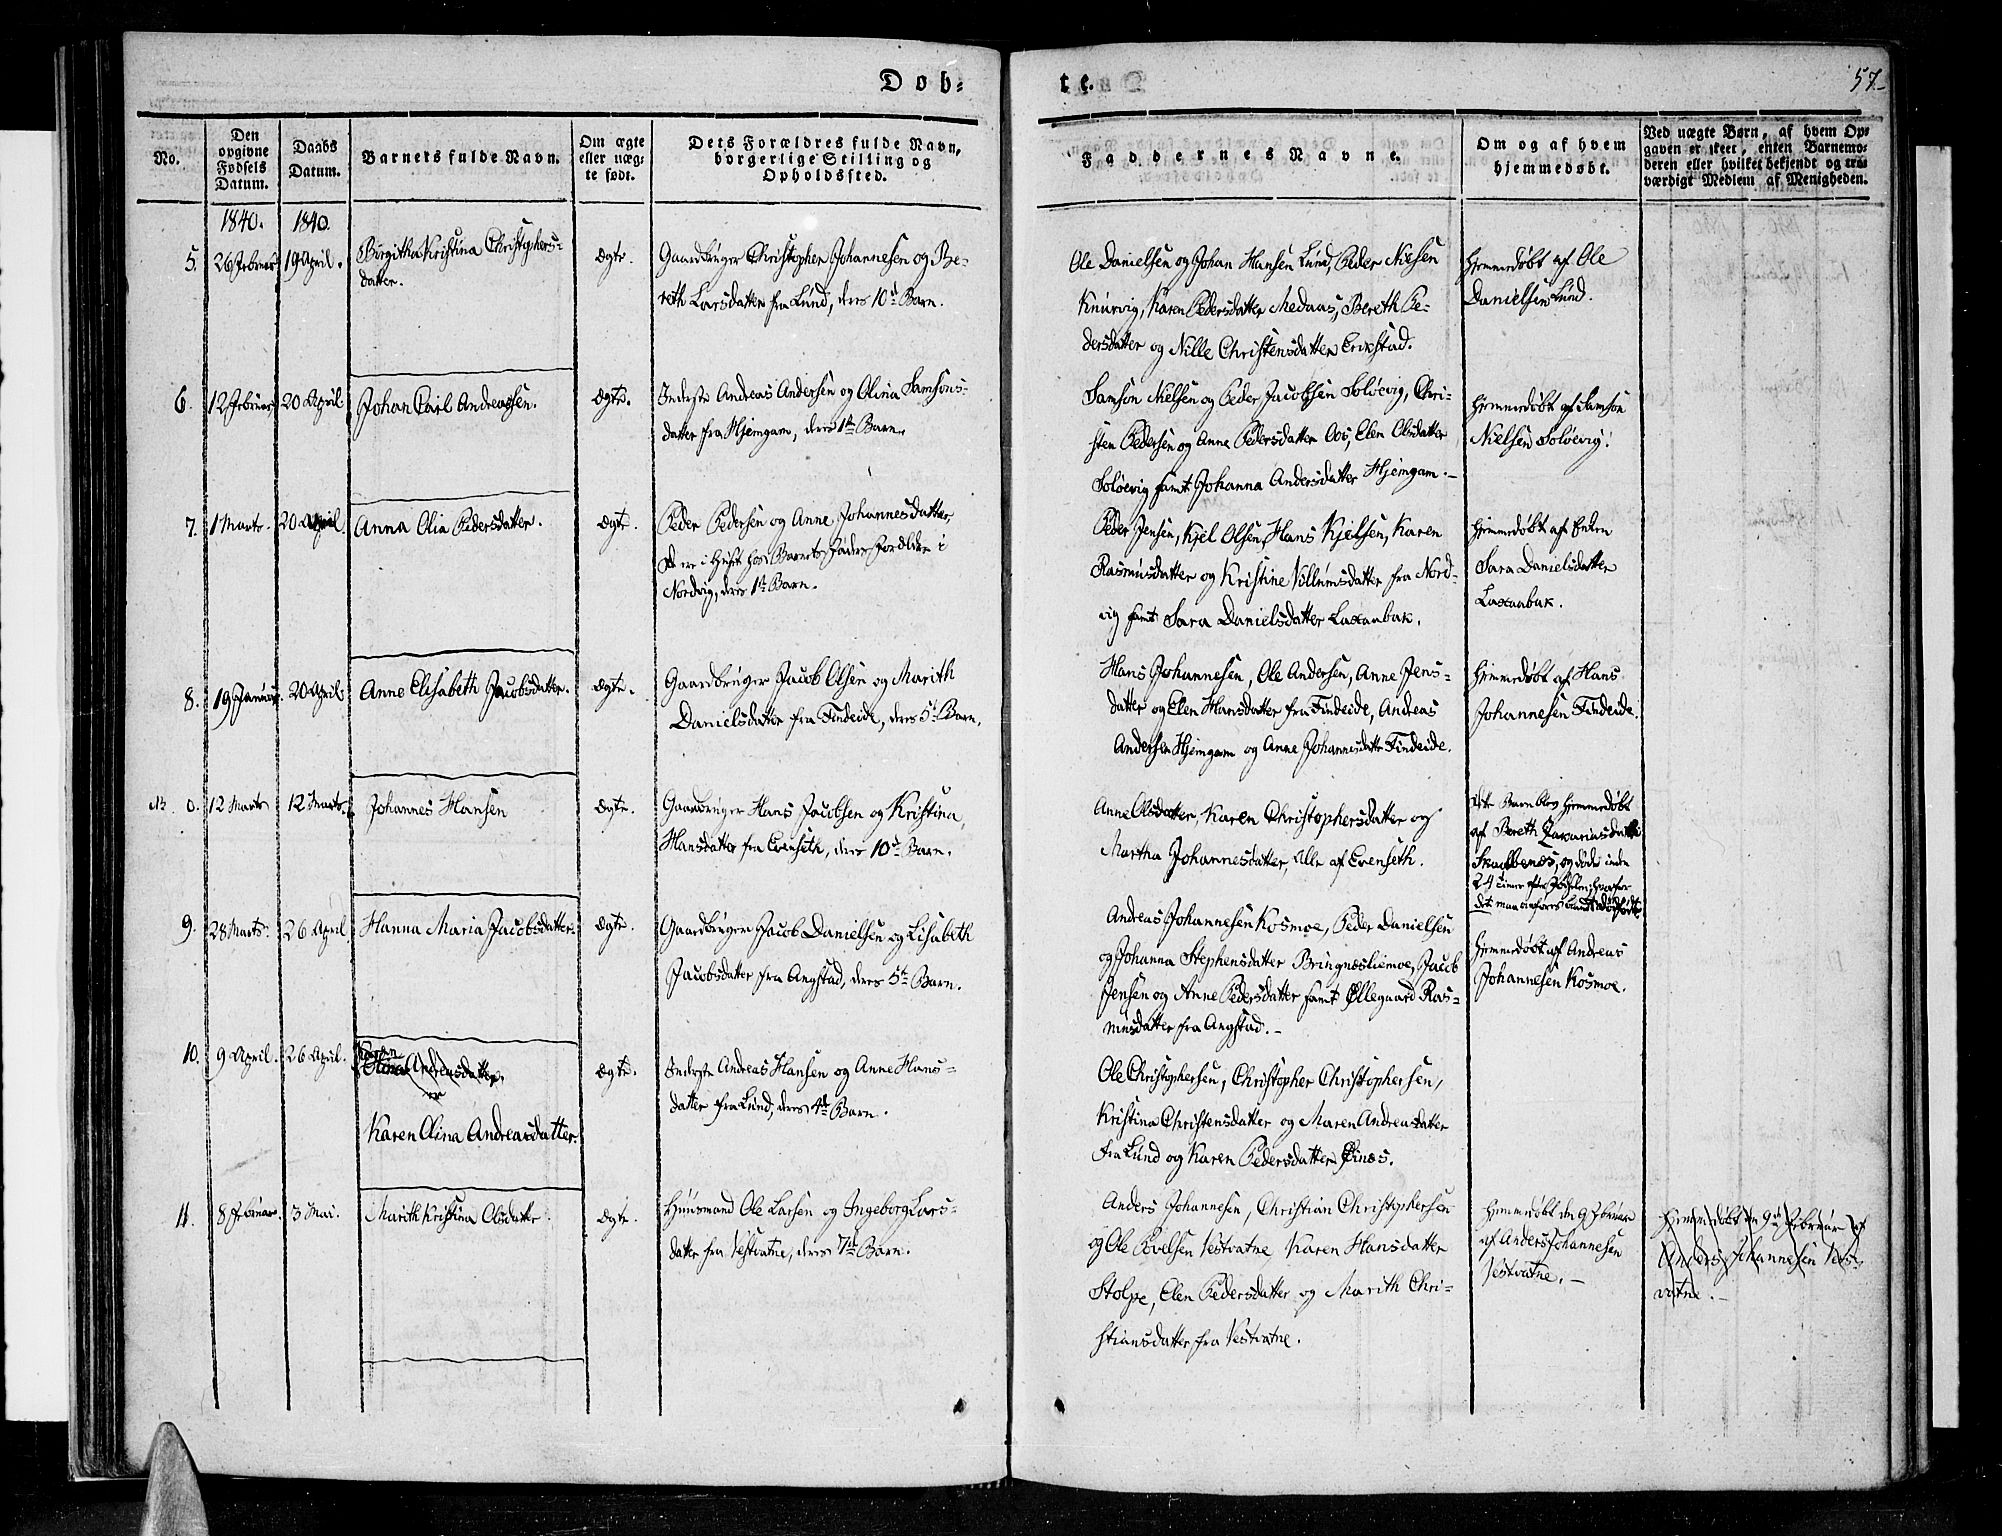 Døb-
te.
57
No.
Den
opgivne
Fødsels
Datum.
Daabs
Datum.
Barnets fulde Navn.
Om ægte
eller uæg-
te født.
Dets Forældres fulde Navn,
borgerlige Stilling og
Opholdssted.
Faddernes Navne.
Om og af hvem
hjemmedøbt.
Ved uægte Børn, af hvem Op-
gaven er skeet, enten Barnemo-
deren eller hvilket bekjendt og tro-
værdigt Medlem af Menigheden.
1840. 1840.
5. 26 Februar 19 April.
Birgitha Kristina Christophers-
datter.
Ægte.
Gaardbruger Christopher Johannesen og Be-
reth Larsdatter fra Lund, deres 10de Barn.
Ole Danielsen og Johan Hansen Lund, Peder Nielsen
Knurvig, Karen Pedersdatter Medaas, Bereth Pe-
dersdatter og Nille Christensdatter Erikstad.
Hjemmedøbt af Ole
Danielsen Lund.
6. 12 Februar 20 April
Johan Carl Andreassen.
Ægte.
Inderste Andreas Andersen og Olina Samsons-
datter fra Hjemgam, deres 1ste Barn.
Samson Nielsen og Peder Jacobsen Soløevig, Chri-
sten Pedersen og Anne Pedersdatter Oos, Elen Olsdatter
Soløevig samt Johanna Andersdatter Hjemgam.
Hjemmedøbt af Samson
Nielsen Soløevig.
7. 1 Marts. 20 April.
Anna Olia Pedersdatter.
Ægte.
Peder Pedersen og Anne Johannesdatter,
ere i Huset hos Barnets Faders Forældre i
Nordvig, deres 1ste Barn.
Peder Jensen, Kjel Olsen, Hans Kjelsen, Karen
Rasmusdatter og Kristine Villumsdatter fra Nord-
vig samt Sara Danielsdatter Laxaabak.
Hjemmedøbt af Enken
Sara Danielsdatter
Laxaabak.
8. 19 Januar. 20 April
Anne Elisabeth Jacobsdatter.
Ægte.
Gaardbruger Jacob Olsen og Marith
Danielsdatter fra Findeide, deres 5te Barn.
Hans Johannesen, Ole Andersen, Anne Jens-
datter og Elen Hansdatter fra Findeide, Andreas
Andersen Hjemgam og Anne Johannesdatter Findeide.
Hjemmedøbt af Hans
Johannesen Findeide.
0. 12 Marts 12 Marts.
Johannes Hansen
Ægte.
Gaardbruger Hans Jacobsen og Kristina
Hansdatter fra Evenseth, deres 10de Barn.
Anne Olsdatter, Karen Christophersdatter og
Martha Johannesdatter, alle af Evenseth.
dette Barn blev hjemmedøbt
af Bereth Zakariasdatter
og døde inden
24 Timer efter Fødselen, hvorfor
det maa anføres blandt dødfødte
9. 28 Marts. 26 April.
Hanna Maria Jacobsdatter.
Ægte.
Gaardbruger Jacob Danielsen og Lisabeth
Jacobsdatter fra Angstad, deres 5te Barn.
Andreas Johannesen Kosmoe, Peder Danielsen
og Johanna Stephensdatter Bringnesliemoe, Jacob
Jensen og Anne Pedersdatter samt Øllegaard Ras-
musdatter fra Angstad.
Hjemmedøbt af Andreas
Johannesen Kosmoe.
10. 9 April. 26 April.
Karen
Olina Andreasdatter.
Karen Olina Andreasdatter.
Ægte.
Inderste Andreas Hansen og Anne Hans-
datter fra Lund, deres 4de Barn.
Ole Christophersen, Christopher Christophersen,
Kristina Christensdatter og Maren Andreasdatter
fra Lund og Karen Pedersdatter Finæs.
11. 8 Februar. 3 Mai.
Marith Kristina Olsdatter.
Ægte.
Huusmand Ole Larsen og Ingeborg Lars-
datter fra Vestvatne, deres 7de Barn.
Anders Johannesen, Christian Christophersen
og Ole Povelsen Vestvatne, Karen Hansdatter
Stolpe, Elen Pedersdatter og Marith Chri-
stiansdatter fra Vestvatne.
Hjemmedøbt den 9 Februar
af Anders Johannesen
Vestvatne.
Hjemmedøbt den 9de Februar af
Anders Johannesen Vest-
vatne.